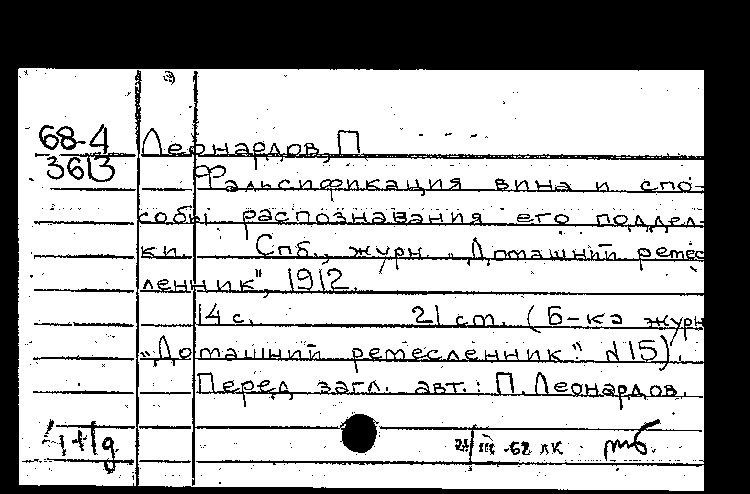 68-4
3613
Леонардов, П
Фальсификация вина и спо-
собы распознавания его поддел-
ки. Спб., журн. „Домашний ремес
ленник", 1912.
14 с. 21 см. (Б-ка журн
„Домашний ремесленник". N15).
Перед загл. авт.: П. Леонардов.
III -62 лк